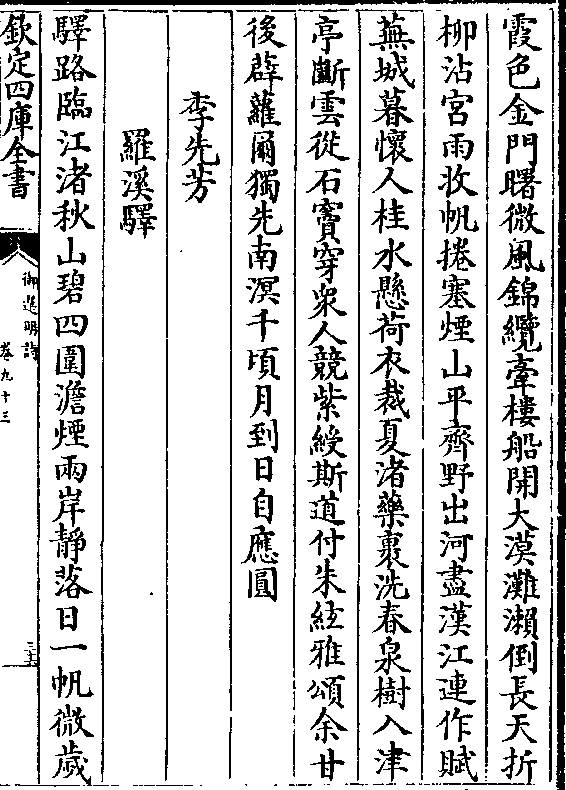 霞色金門曙微風錦纜牽樓船開大漠灘瀨倒長天折
柳沾宮雨收帆捲塞煙山平齊野出河盡漢江連作賦
蕪城暮懷人桂水懸荷衣裁夏渚藥裹洗春泉樹入津
亭斷雲從石竇穿衆人競紫綬斯道付朱絃雅頌余甘
後薜蘿爾獨先南溟千頃月到日自應圓
李先芳
羅溪驛
驛路臨江渚秋山碧四圍澹煙兩岸靜落日一帆微歲
欽定四庫全書
御選明詩
卷九十三
三五